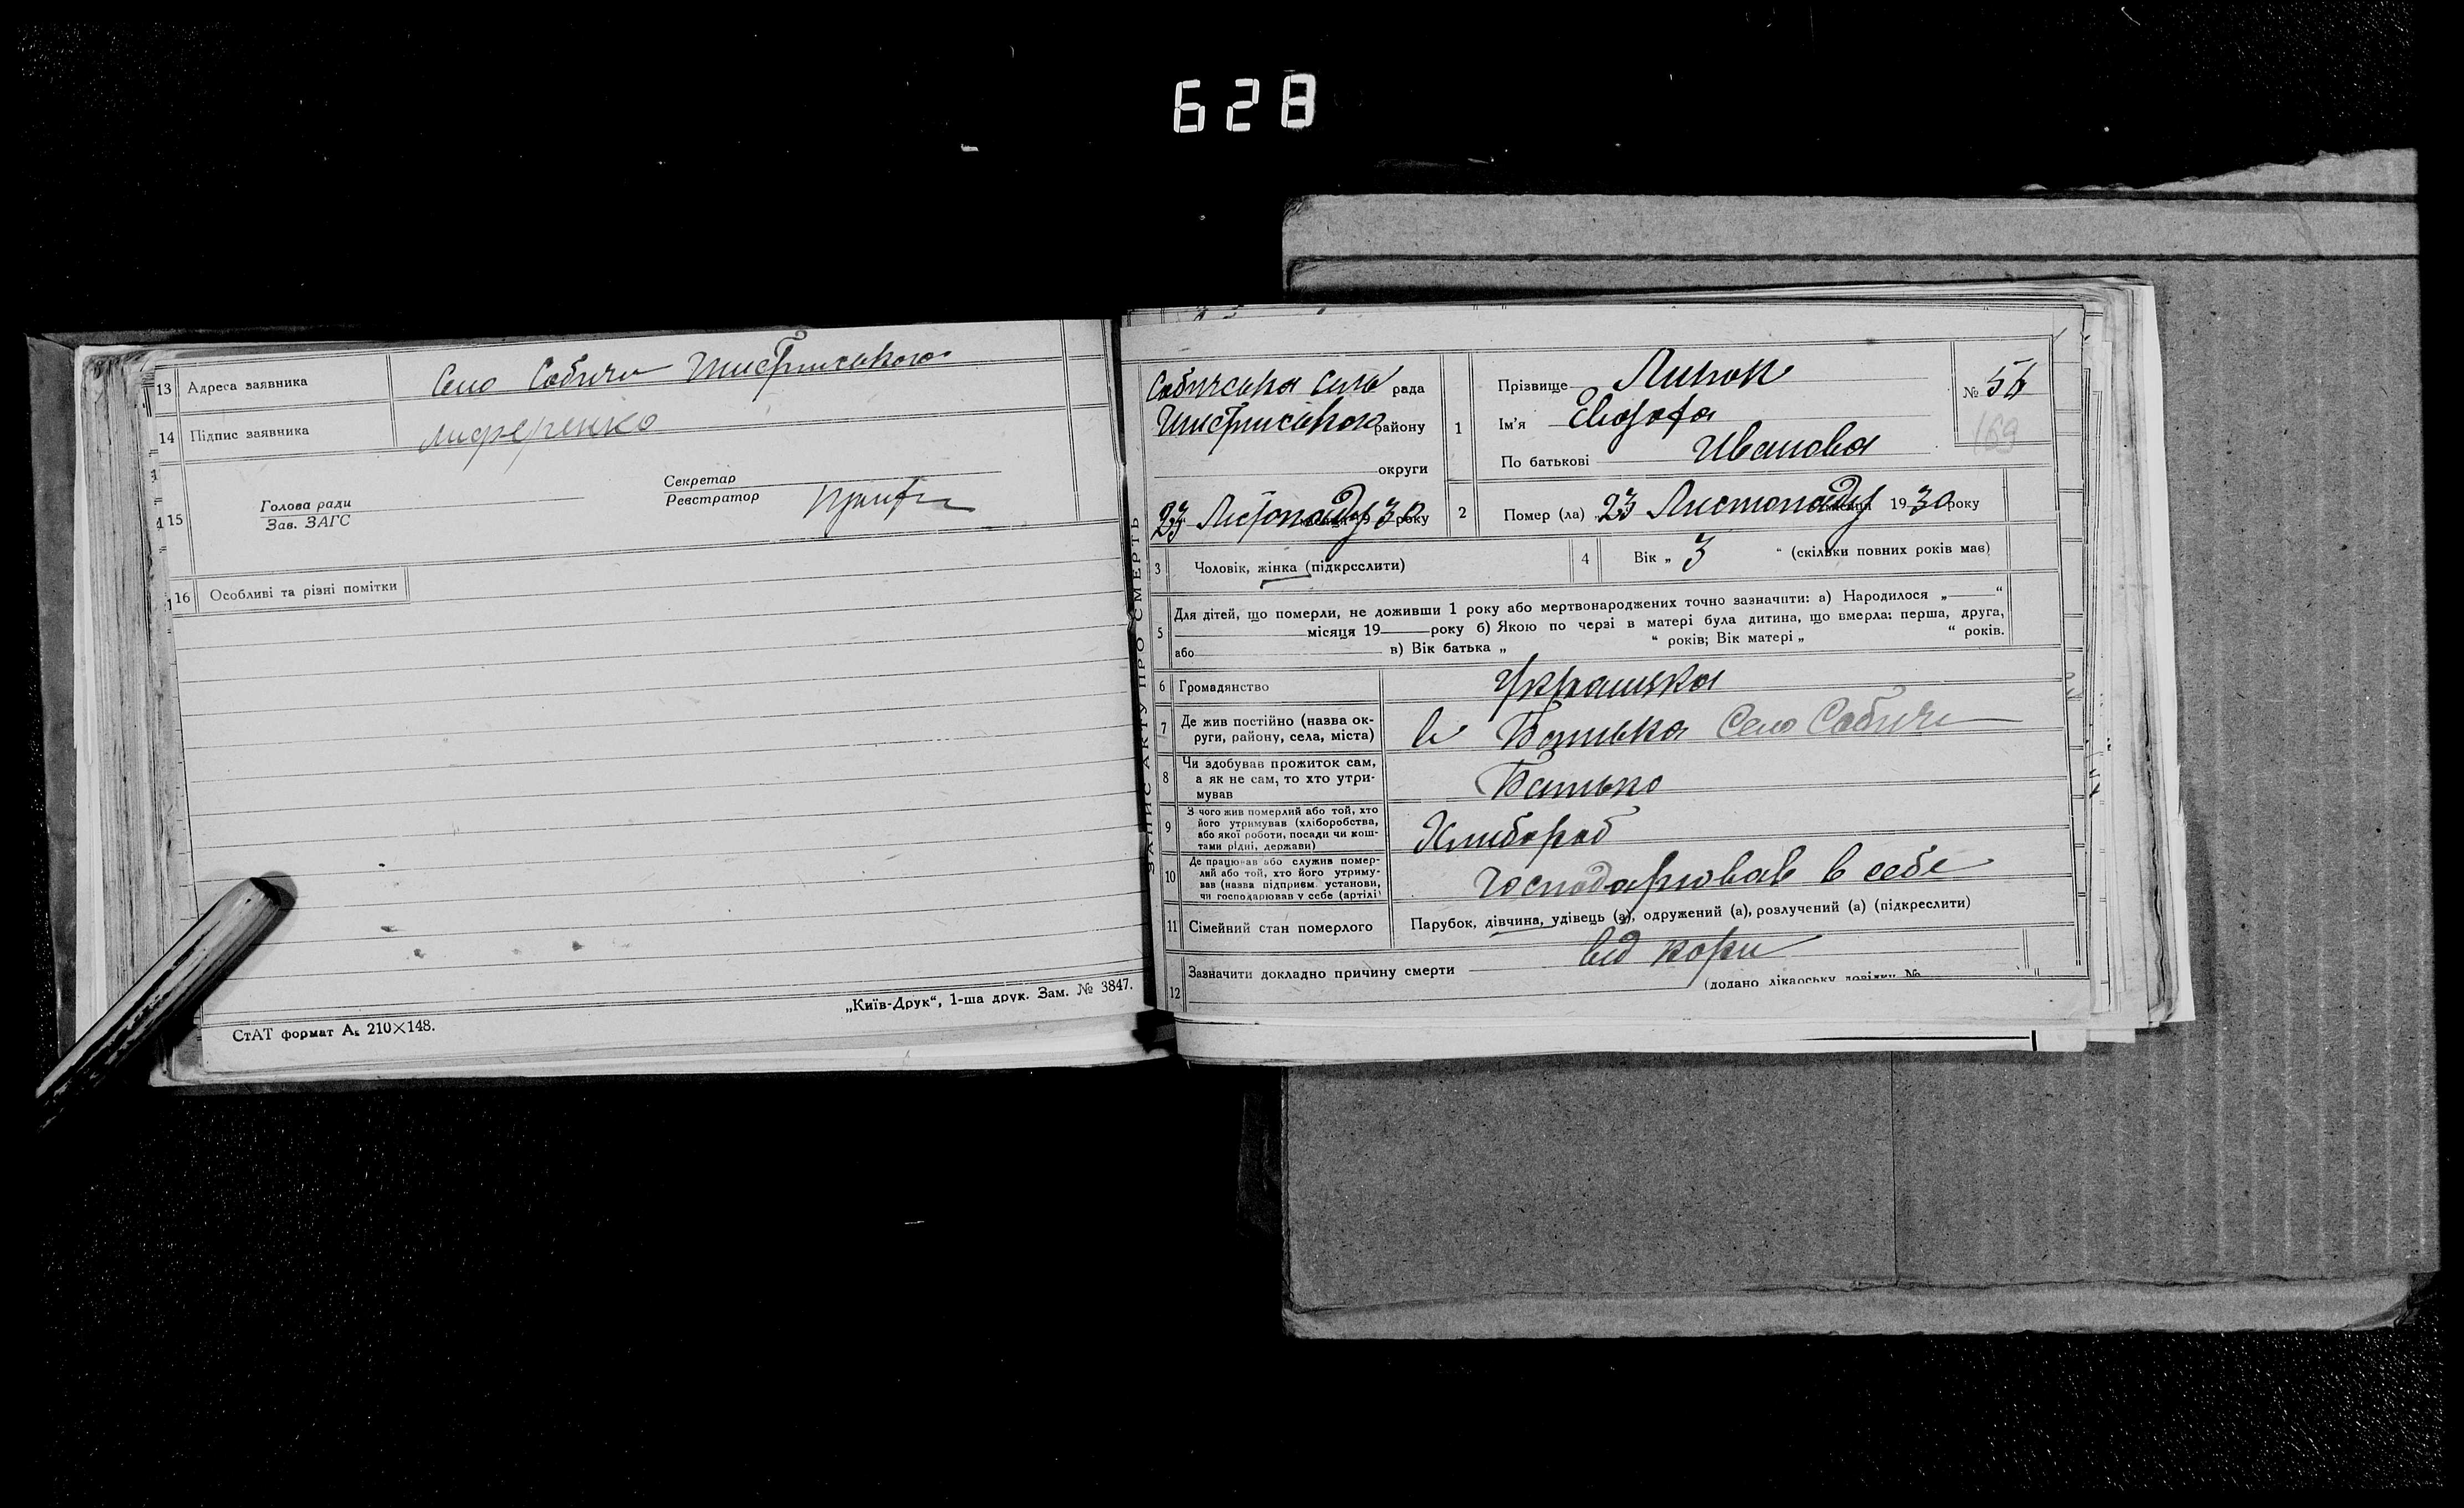 628
13 Адреса заявника Село Собичи Шистриського
14 Підпис заявника
15 Голова ради
Зав. ЗАГС
Секретар
Реєстратор
16 Особливі та різні помітки
„Київ-Друк“, 1-ша друк. Зам. № 3847.
СтАТ формат А₅ 210×148.
ЗАПИС АКТУ ПРО СМЕРТЬ
Собичська Сель рада
району
округи
23 Листопаду 30 року
1 Прізвище
Ім'я
По батькові Иванова
№ 56
169
2 Помер (ла) „23 Листопаду місяця 1930 року
3 Чоловік, жінка (підкреслити)
4 Вік „ 3 “ (скільки повних років має)
5 Для дітей, що померли, не доживши 1 року або мертвонароджених точно зазначити: а) Народилося „ “
місяця 19 року б) Якою по черзі в матері була дитина, що вмерла: перша, друга,
або в) Вік батька „ “ років; Вік матері „ “ років.
6 Громадянство Украинка
7 Де жив постійно (назва ок-
руги, району, села, міста) в Батька Село Собичи
8 Чи здобував прожиток сам,
а як не сам, то хто утри-
мував Батько
9 З чого жив померлий або той, хто
його утримував (хліборобства,
або якої роботи, посади чи кош-
тами рідні, держави) Хлибороб
10 Де працював або служив помер-
лий або той, хто його утриму-
вав (назва підприєм. установи,
чи господарював у себе (артілі) Господарював в себе
11 Сімейний стан померлого Парубок, дівчина, удівець (а), одружений (а), розлучений (а) (підкреслити)
12 Зазначити докладно причину смерти від кори
(додано лікарську довідку №